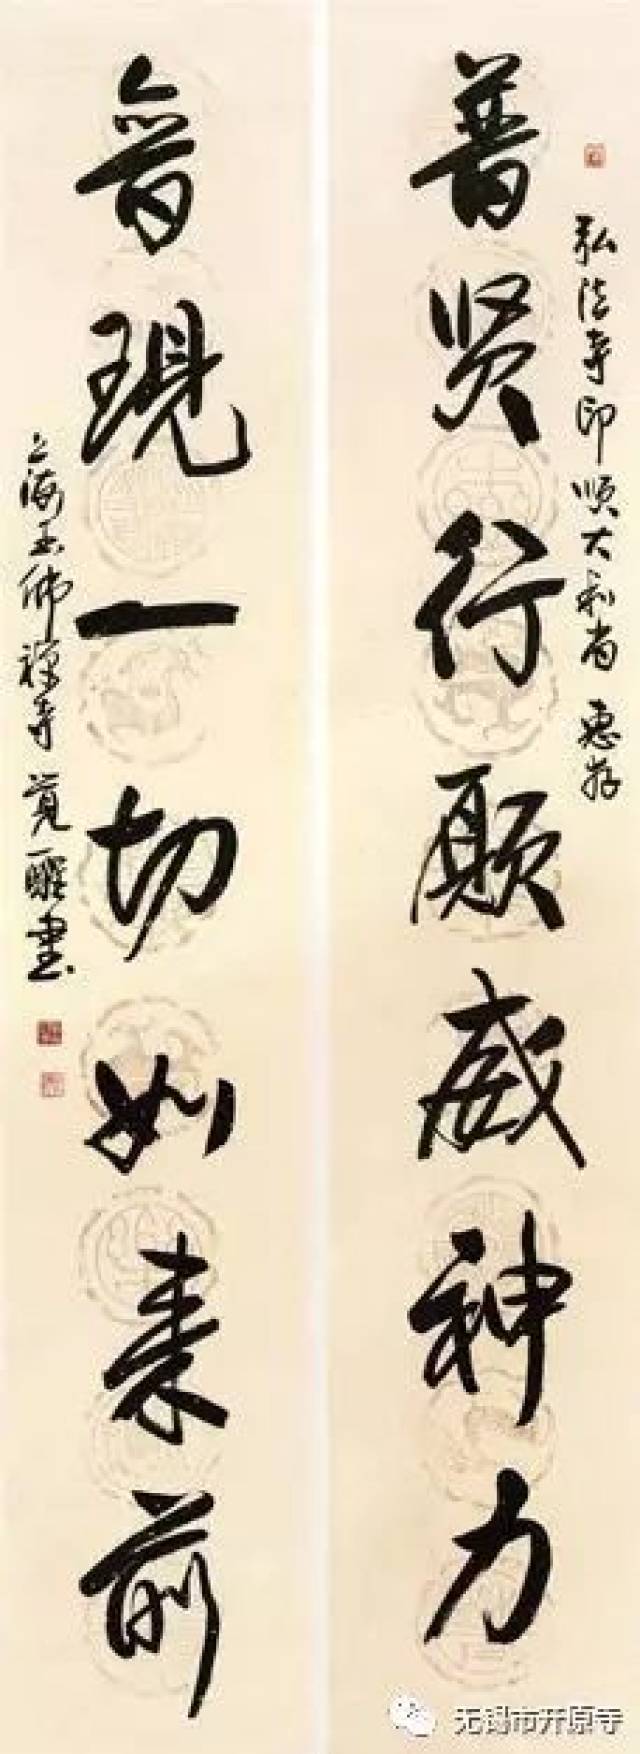 弘法寺印顺大和尚 惠存
普贤行願威神力
普現一切如来前
上海玉佛禅寺觉醒书
无锡市开原寺